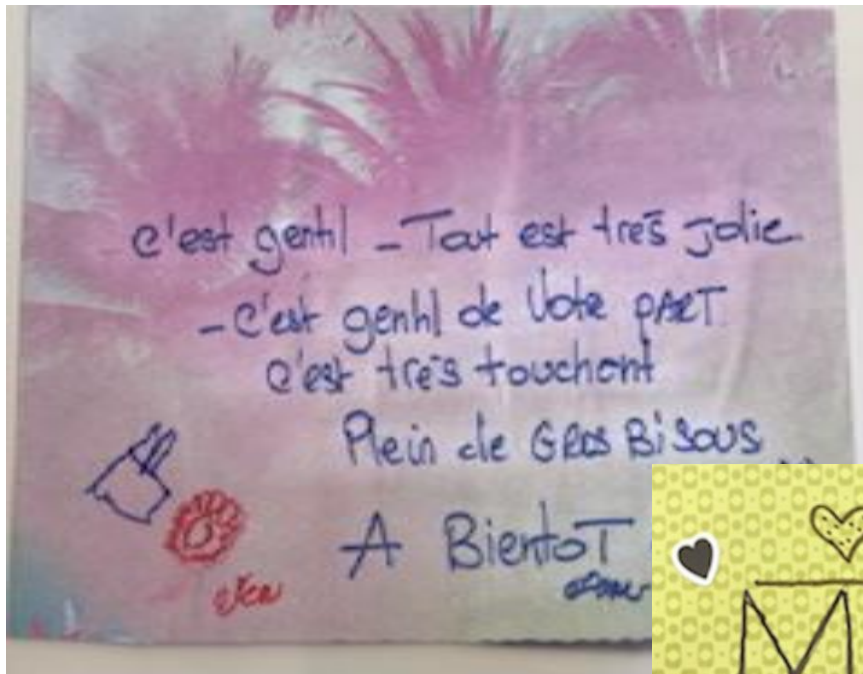 C'est gentil - Tout est très jolie
- C'est gentil de Vote PART
C'est très touchant
Plein de GROS BiSOUS
A BientoT
M